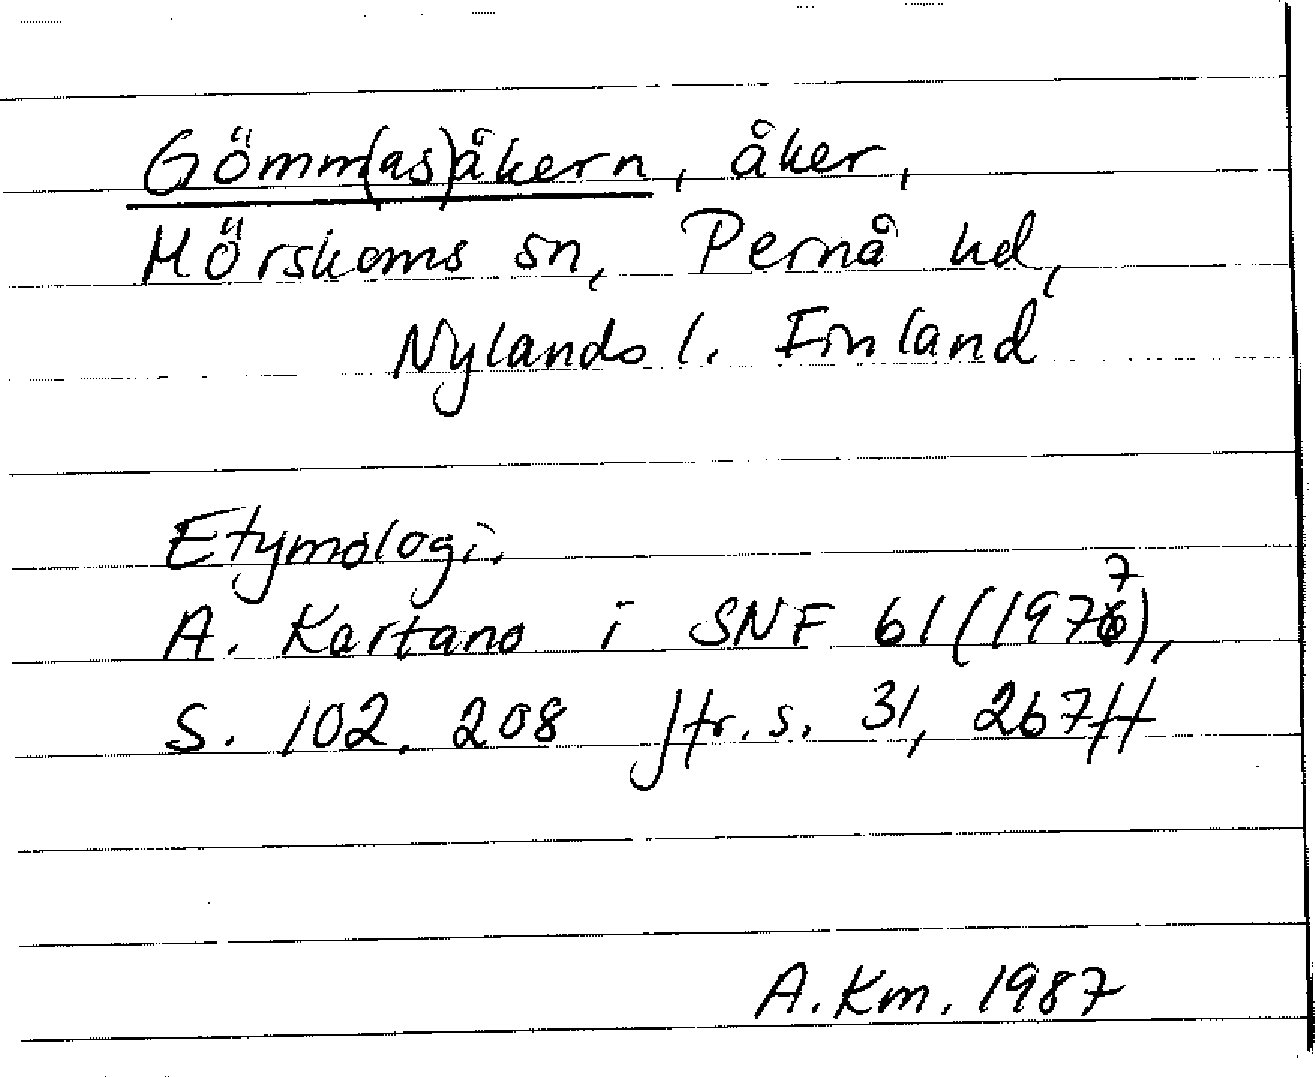 Gömm(as)åkern, åker,
Mörskoms sn, Pernå hd,
Nylands l. Finland
Etymologi.
A. Kartano i SNF 61 (1977),
S. 102, 208 Jfr. s. 31, 267ff
A. Km. 1987